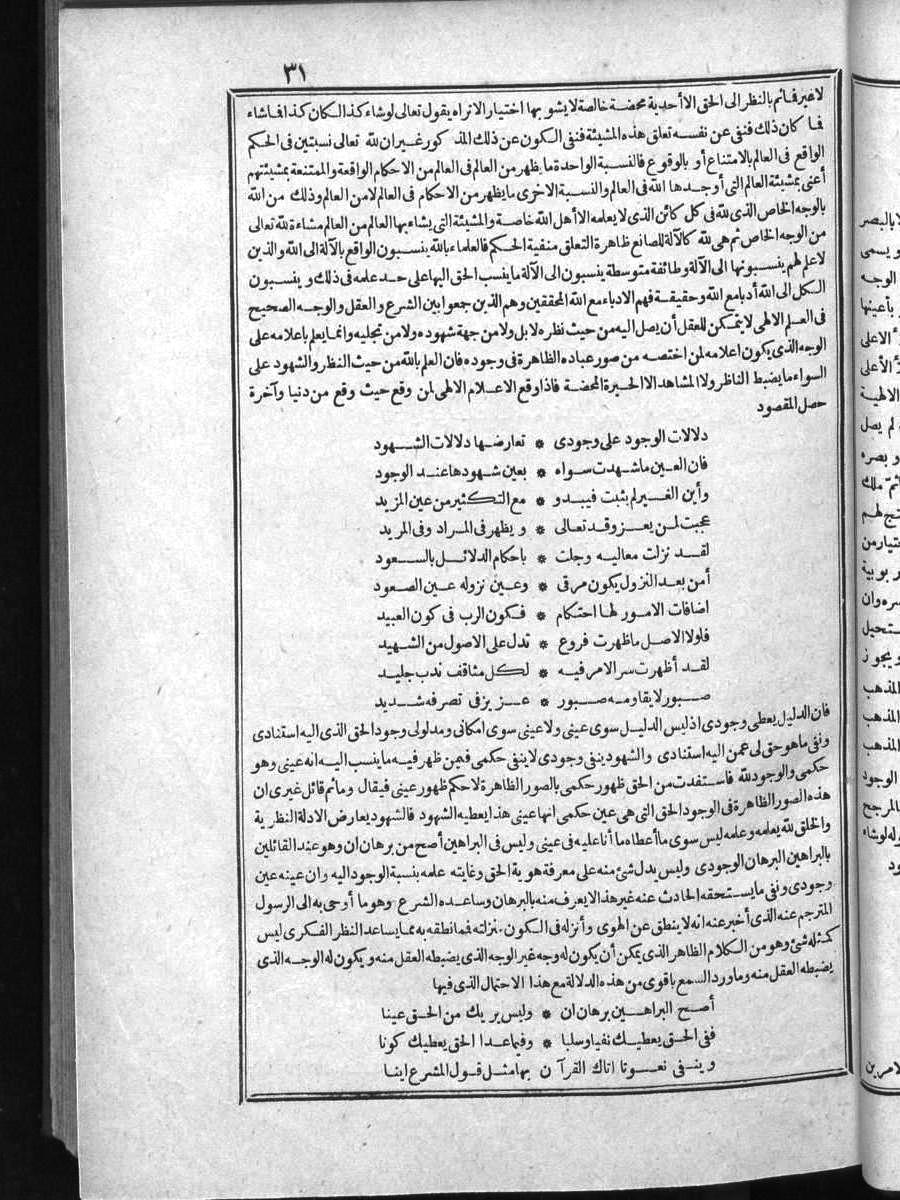 ٣١
لاغير فاثم بالنظر الى الحق الا أحدية محضة خالصة لا يشوبها اختيار الاتراه يقول تعالى لوشاء كذا لكان كذا فاشاء
فما كان ذلك فنفى عن نفسه تعلق هذه المشيئة فنفى الكون عن ذلك المذكور غير ان لله تعالى نسبتين فى الحكم
الواقع فى العالم بالامتناع أو بالوقوع فالنسبة الواحدة ما يظهر من العالم فى العالم من الاحكام الواقعة والممتنعة بمشيئتهم
أعنى بمشيئة العالم التى أوجدها الله فى العالم والنسبة الاخرى ما يظهر من الاحكام فى العالم لا من العالم وذلك من الله
بالوجه الخاص الذى لله فى كل كائن الذى لا يعلمه الا أهل الله خاصة والمشيئة التى يشاء بها العالم من العالم مشاءة لله تعالى
من الوجه الخاص ثم هى لله كالآلة للصانع ظاهرة التعلق منفية الحكم فالعلماء بالله ينسبون الواقع بالآلة الى الله والذين
لا علم لهم ينسبونها الى الآلة وطائفة متوسطة ينسبون الى الآلة ما ينسب الحق اليها على حد علمه فى ذلك و ينسبون
الكل الى الله أدبا مع الله وحقيقة فهم الادباء مع الله المحققين وهم الذين جمعوا بين الشرع والعقل والوجه الصحيح
فى العلم الالهى لا يتمكن للعقل أن يصل اليه من حيث نظره لا بل ولا من جهة شهوده ولا من تجليه وانما يعلم باعلامه على
الوجه الذى يكون اعلامه لمن اختصه من صور عباده الظاهرة فى وجوده فان العلم بالله من حيث النظر والشهود على
السواء ما يضبط الناظر ولا المشاهد الا الحيرة المحضة فاذا وقع الاعلام الالهى لمن وقع حيث وقع من دنيا وآخرة
حصل المقصود
دلالات الوجود على وجودى * تعارضها دلالات الشهود
فان العين ما شهدت سواء * بعين شهودها عند الوجود
وأين الغير لم يثبت فيبدو * مع التكثير من عين المزيد
عجبت لمن يعز وقد تعالى * و يظهر فى المراد وفى المريد
لقد نزلت معاليه وجلت * باحكام الدلائل بالسعود
أمن بعد النزول يكون مرقى * وعين نزوله عين الصعود
اضافات الامور لها احتكام * فكون الرب فى كون العبيد
فلولا الاصل ما ظهرت فروع * تدل على الاصول من الشهيد
لقد أظهرت سر الامر فيه * لكل مثاقف ندب جليد
صبور لا يقاومه صبور * عزيز فى تصرفه شديد
فان الدليل يعطى وجودى اذ ليس الدليل سوى عينى ولا عينى سوى امكانى ومدلولى وجود الحق الذى اليه استنادى
ونفى ما هو حق لى عمن اليه استنادى والشهود ينفى وجودى لا ينفى حكمى فيمن ظهر فيه ما ينسب اليه انه عينى وهو
حكمى والوجود لله فاستفدت من الحق ظهور حكمى بالصور الظاهرة لا حكم ظهور عينى فيقال وماثم قائل غيرى ان
هذه الصور الظاهرة فى الوجود الحق التى هى عين حكمى انها عينى هذا يعطيه الشهود فالشهود يعارض الادلة النظرية
والخلق لله يعلمه وعلمه ليس سوى ما أعطاه ما أنا عليه فى عينى وليس فى البراهين أصح من برهان ان وهو عند القائلين
بالبراهين البرهان الوجودى وليس يدل شئ منه على معرفة هوية الحق وغايته علمه بنسبة الوجود اليه وان عينه عين
وجودى ونفى ما يستحقه الحادث عنه غير هذا لا يعرف منه بالبرهان وساعده الشرع وهو ما أوحى به الى الرسول
المترجم عنه الذى أخبر عنه انه لا ينطق عن الهوى وأنزله فى الكون منزلته فما نطقه به مما يساعد النظر الفكرى ليس
كمثله شئ وهو من الكلام الظاهر الذى يمكن أن يكون له وجه غير الوجه الذى يضبطه العقل منه ويكون له الوجه الذى
يضبطه العقل منه وما ورد السمع باقوى من هذه الدلالة مع هذا الاحتمال الذى فيها
أصح البراهين برهان ان * وليس يريك من الحق عينا
ففى الحق يعطيك نفيا وسلبا * وفيما عدا الحق يعطيك كونا
وينفى نعوتا اتاك القرآن بها مثل قول المشرع اينا